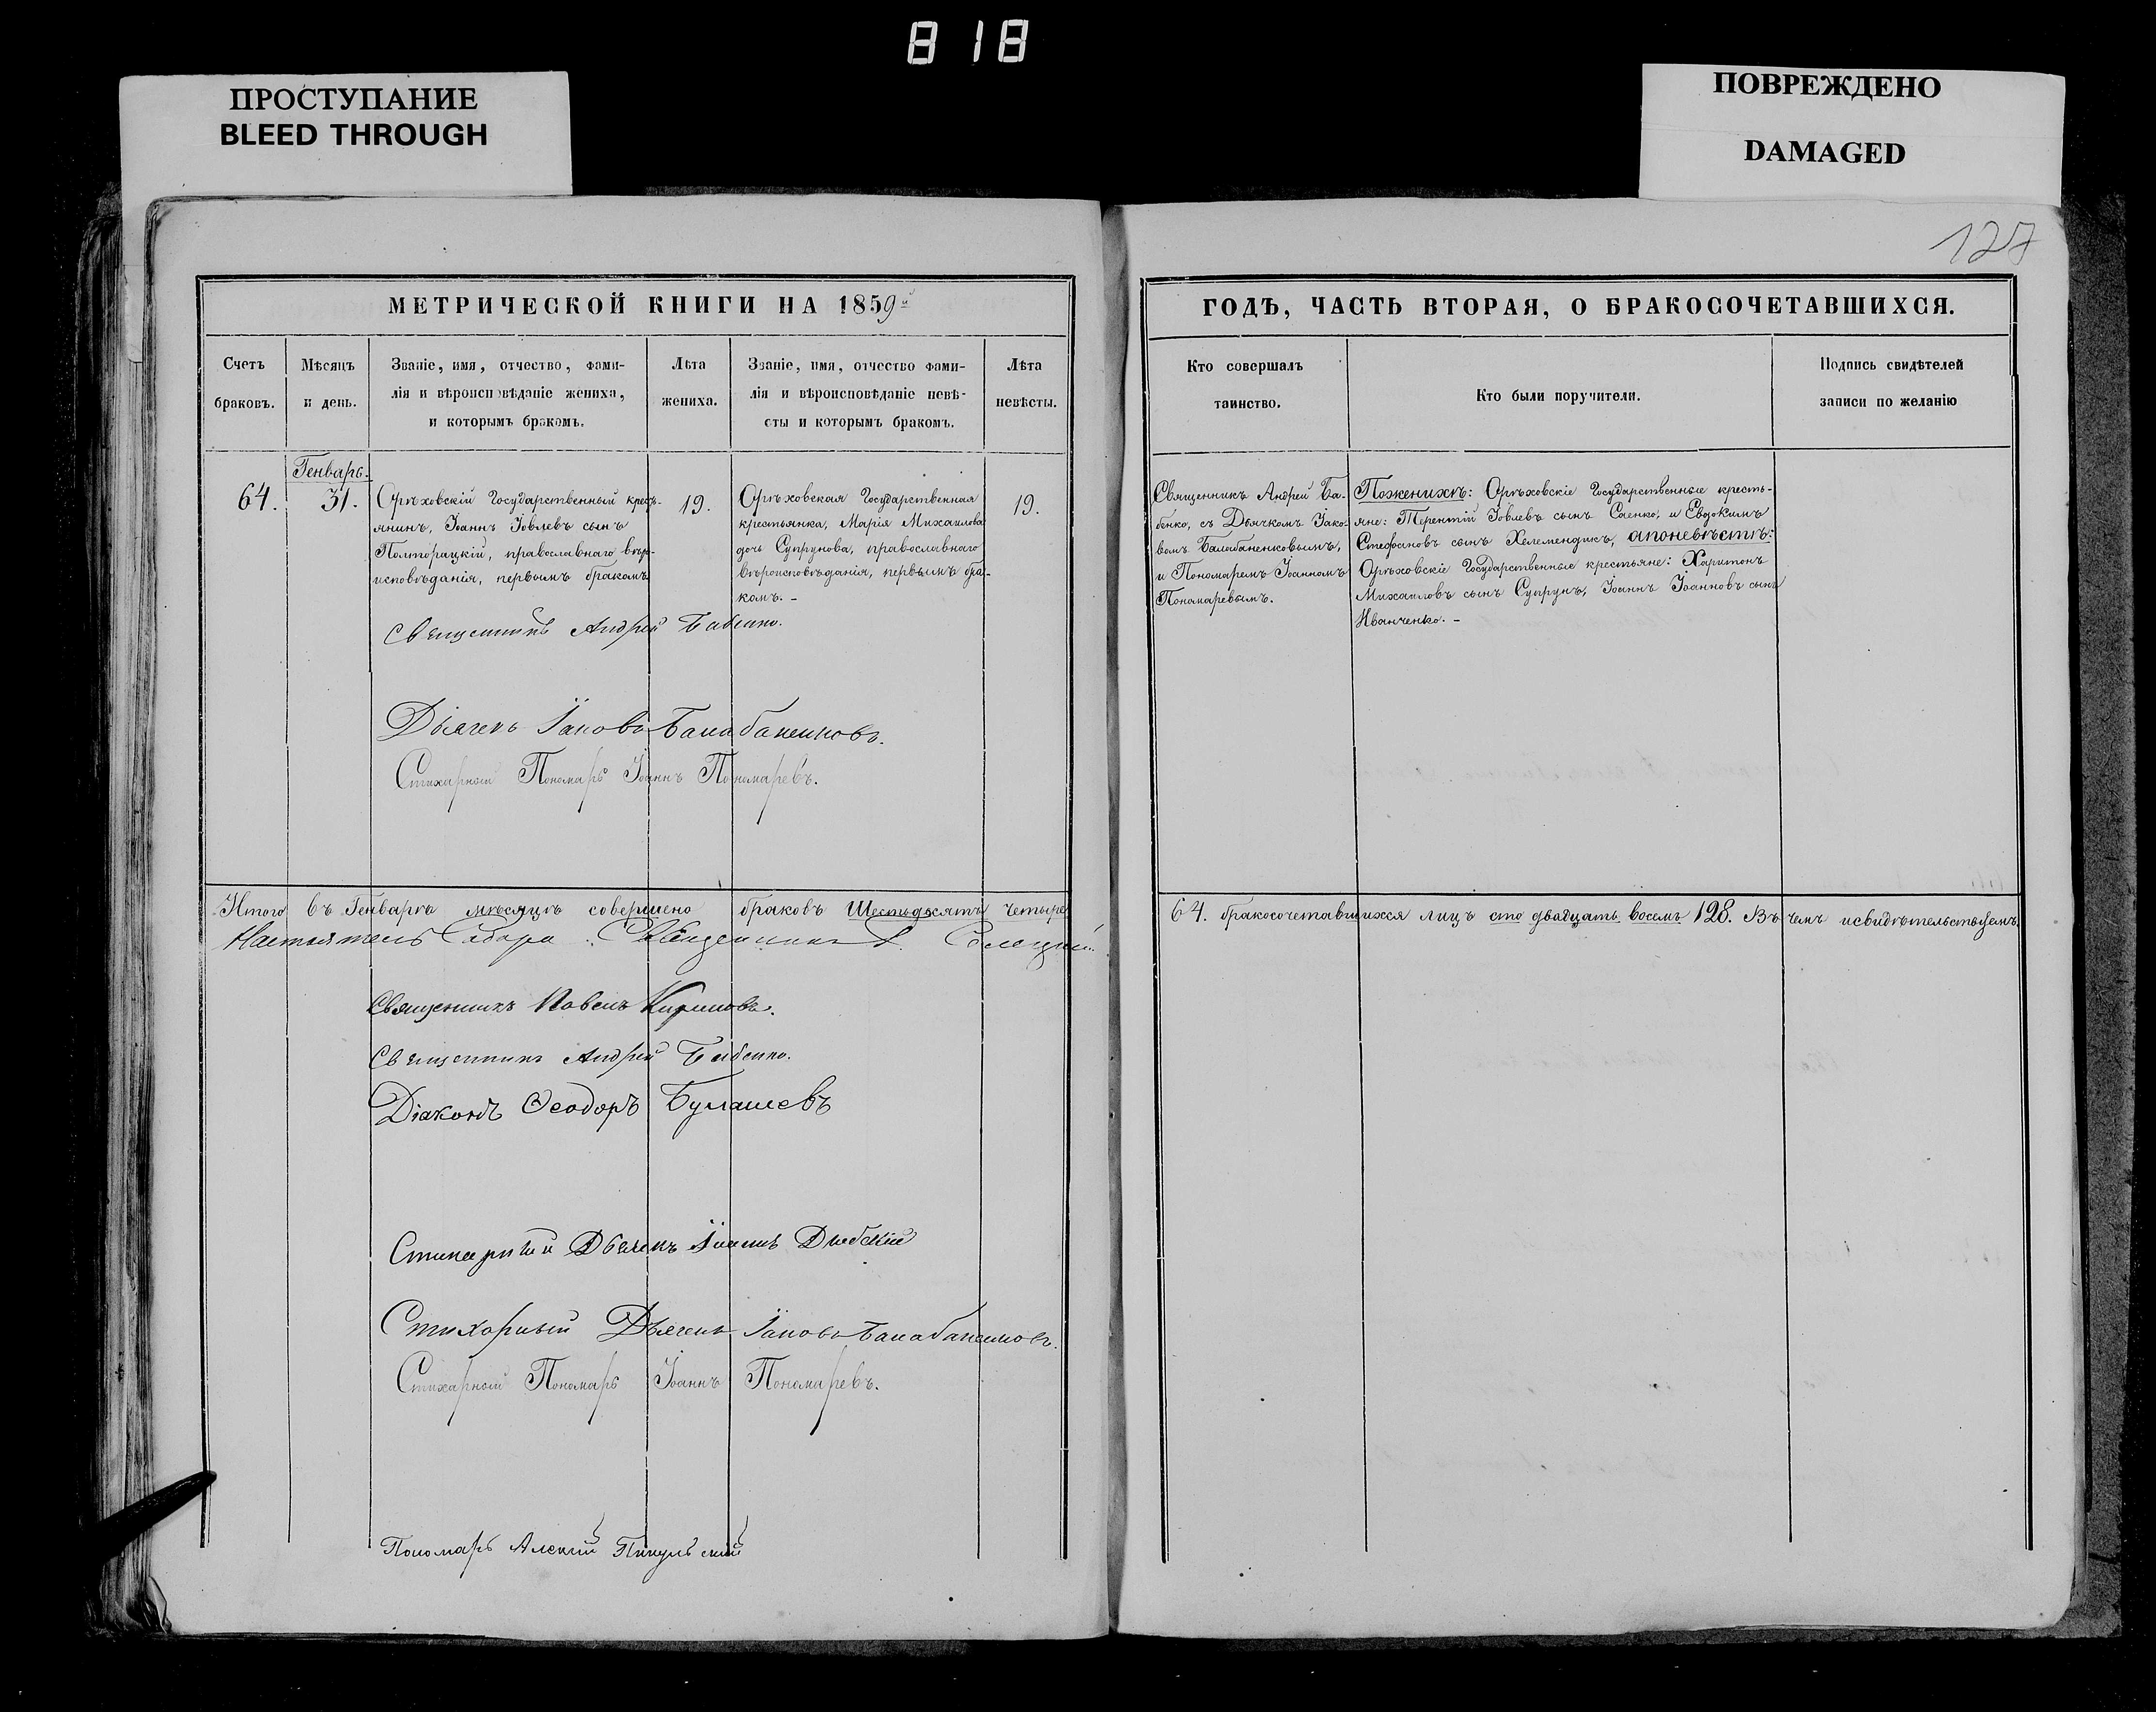 818
ПРОСТУПАНИЕ
BLEED THROUGH
ПОВРЕЖДЕНО
DAMAGED
127
МЕТРИЧЕСКОЙ КНИГИ НА 1859й
Счетъ браковъ.
Мѣсяцъ и день.
Званіе, имя, отчество, фами-
лія и вѣроисповѣданіе жениха,
и которымъ бракомъ.
Лѣта жениха.
Званіе, имя, отчество фами-
лія и вѣроисповѣданіе невѣ-
сты и которымъ бракомъ.
Лѣта невѣсты.
64.
Генварь.
31.
Орѣховскій Государственный кресть-
янинъ, Іоаннъ Іовлевъ сынъ
Полторацкій, православнаго вѣро-
исповѣданія, первымъ бракомъ
19.
Орѣховская Государственная
крестьянка, Марія Михаилова
дочь Супрунова, православнаго
вѣроисповѣданія, первымъ бра-
комъ. -
19.
Священникъ Андрей Бабенко.
Дьячекъ Іаковъ Балабаненковъ.
Стихарный Пономарь Іоаннъ Пономаревъ.
Итого въ Генварѣ мѣсяцѣ совершено браковъ Шестьдесятъ четыре
Настоятель Собора Священникъ
Священникъ Павелъ Кириловъ.
Священникъ Андрей Бабенко.
Діаконъ Ѳеодоръ Булашевъ
Стихарный Дьячекъ Іоаннъ
Стихарный Дьячекъ Іаковъ Балабаненковъ.
Стихарный Пономарь Іоаннъ Пономаревъ.
Пономарь Алексій Пикульскій
ГОДЪ, ЧАСТЬ ВТОРАЯ, О БРАКОСОЧЕТАВШИХСЯ.
Кто совершалъ
таинство.
Кто были поручители.
Подпись свидѣтелей
записи по желанію
Священникъ Андрей Ба-
бенко, съ Дьячкомъ Іако-
вомъ Балабаненковымъ,
и Пономаремъ Іоанномъ
Пономаревымъ.
Поженихѣ: Орѣховскіе Государственные кресть-
яне: Терентій Іовлевъ сынъ Саенко, и Евдокимъ
Стефановъ сынъ Хелемендикъ, апоневѣстѣ:
Орѣховскіе Государственные крестьяне: Харитонъ
Михаиловъ сынъ Супрунъ, Іоаннъ Іоанновъ сынъ
Иванченко. -
64. бракосочетавшихся лицъ сто двадцать восемъ 128. Въ чемъ исвидѣтельствуемъ.